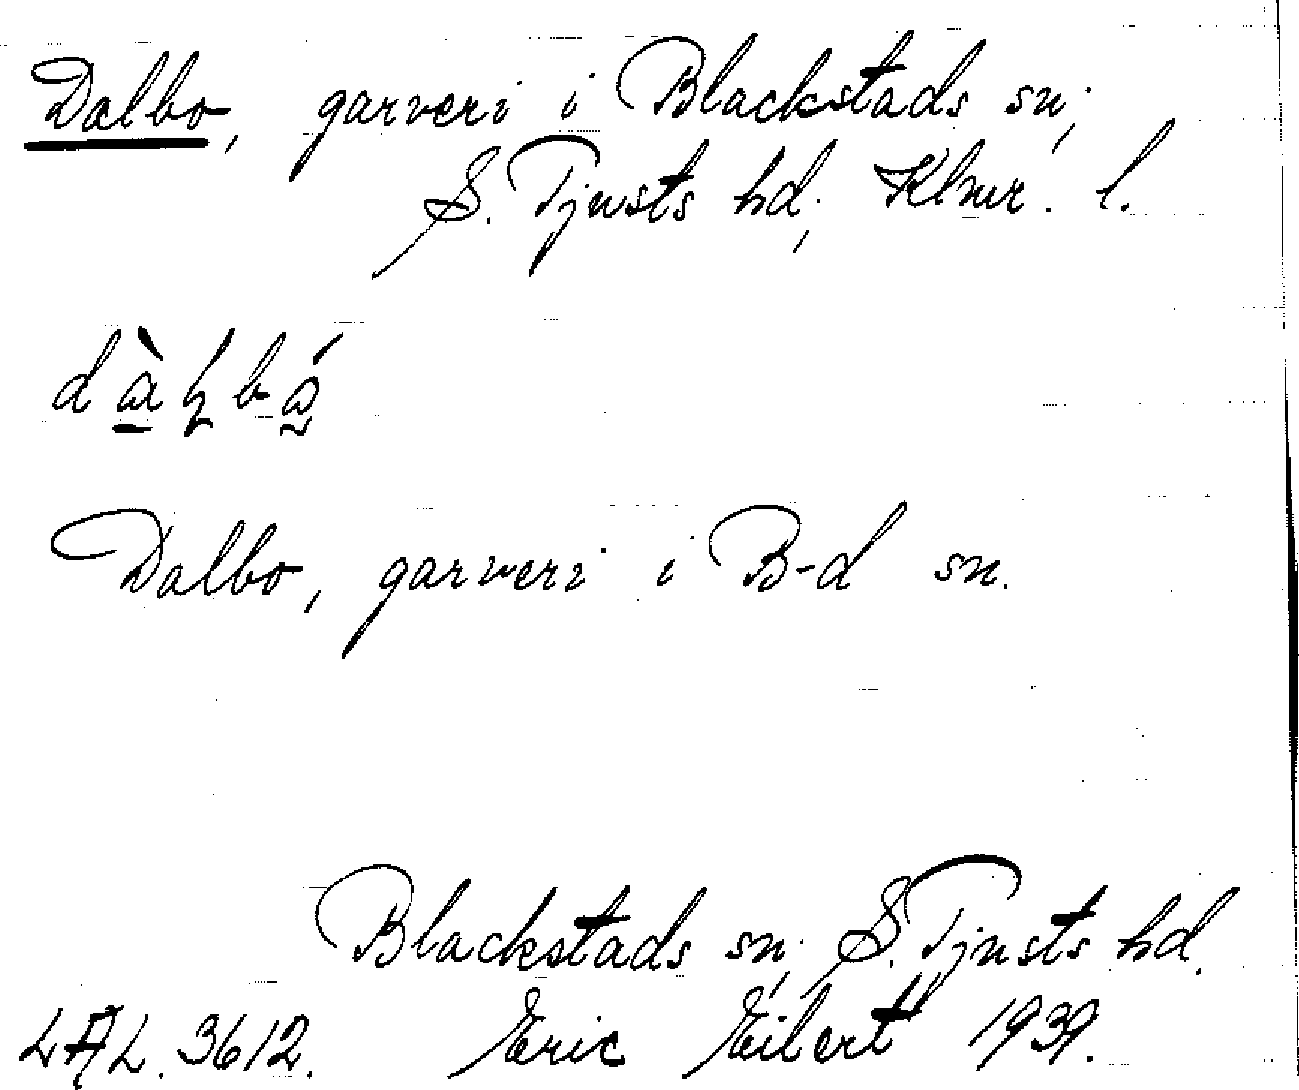 Dalbo, garveri i Blackstads sn.,
S. Tjusts hd., Klmr. l.
Dalbo, garveri i B-d sn.
Blackstads sn., S. Tjusts hd.
LAL. 3612. Eric Eilert 1939.